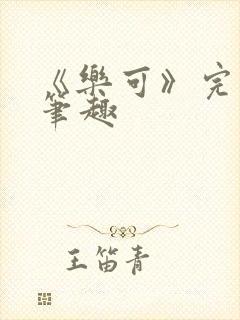 《樂可》完
筆趣
王笛青